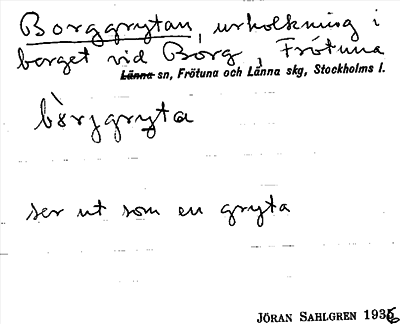 Borggrytan, urholkning i
berget vid Borg, Frötuna
Länna sn, Frötuna och Länna skg, Stockholms l.
bòrjgryta
ser ut som en gryta
JÖRAN SAHLGREN 1936